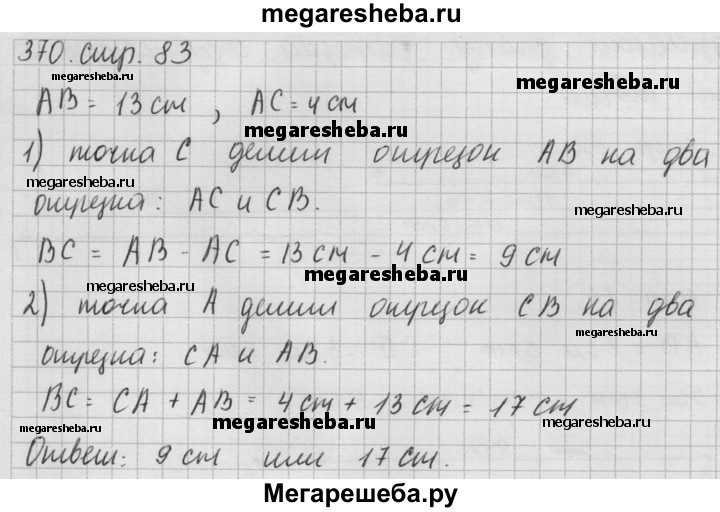 megaresheba.ru
370. стр. 83
megaresheba.ru
AB = 13 см , AC = 4 см
megaresheba.ru
1) точка C делит отрезок AB на два
megaresheba.ru
отрезка: AC и CB.
megaresheba.ru
BC = AB - AC = 13 см - 4 см = 9 см
megaresheba.ru
megaresheba.ru
2) точка A делит отрезок CB на два
megaresheba.ru
отрезка: CA и AB.
BC = CA + AB = 4 см + 13 см = 17 см
megaresheba.ru
megaresheba.ru
megaresheba.ru
Ответ: 9 см или 17 см.
Мегарешеба.ру